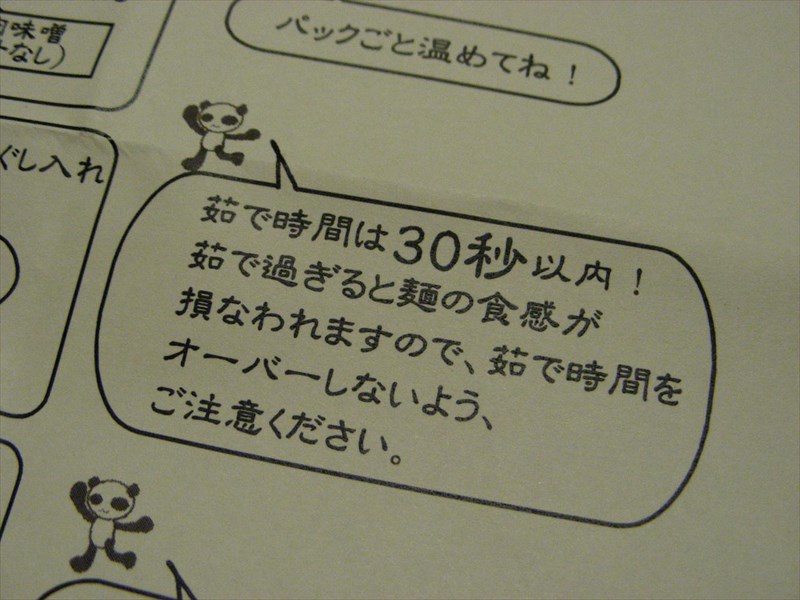 味噌
なし)
パックごと温めてね！
ぐし入れ
茹で時間は30秒以内！
茹で過ぎると麺の食感が
損なわれますので、茹で時間を
オーバーしないよう、
ご注意ください。